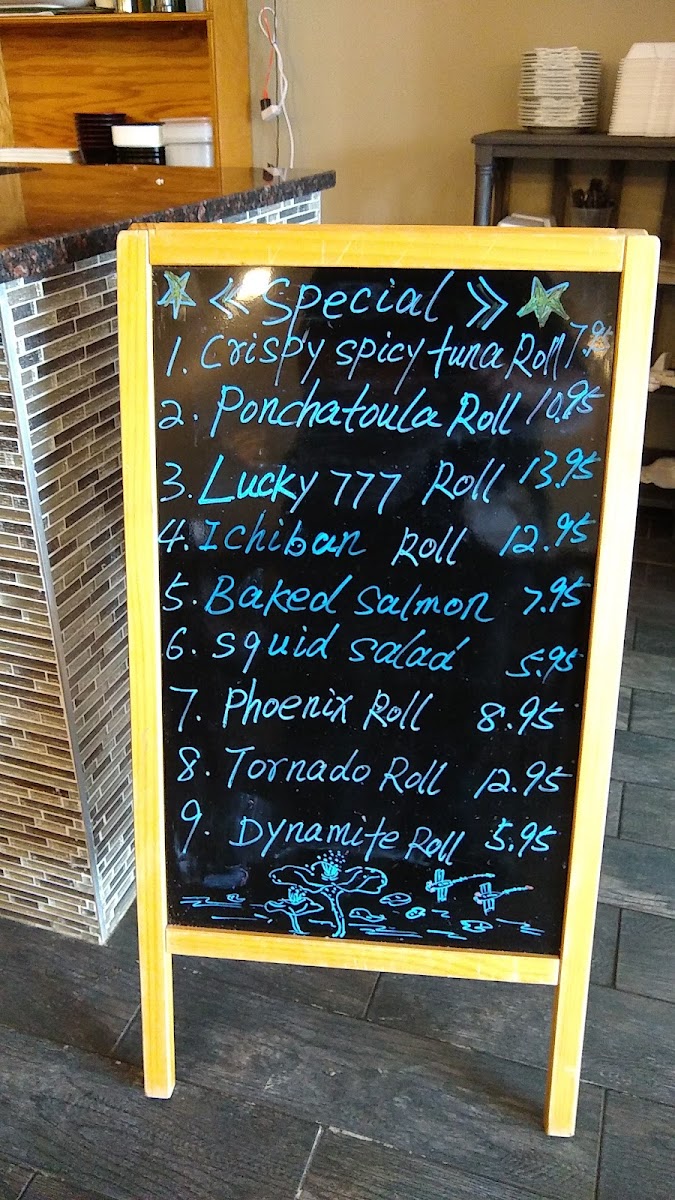 « Special »
1. Crispy spicy tuna Roll 7.95
2. Ponchatoula Roll 10.95
3. Lucky 777 Roll 13.95
4. Ichiban Roll 12.95
5. Baked salmon 7.95
6. squid salad 5.95
7. Phoenix Roll 8.95
8. Tornado Roll 12.95
9. Dynamite Roll 5.95